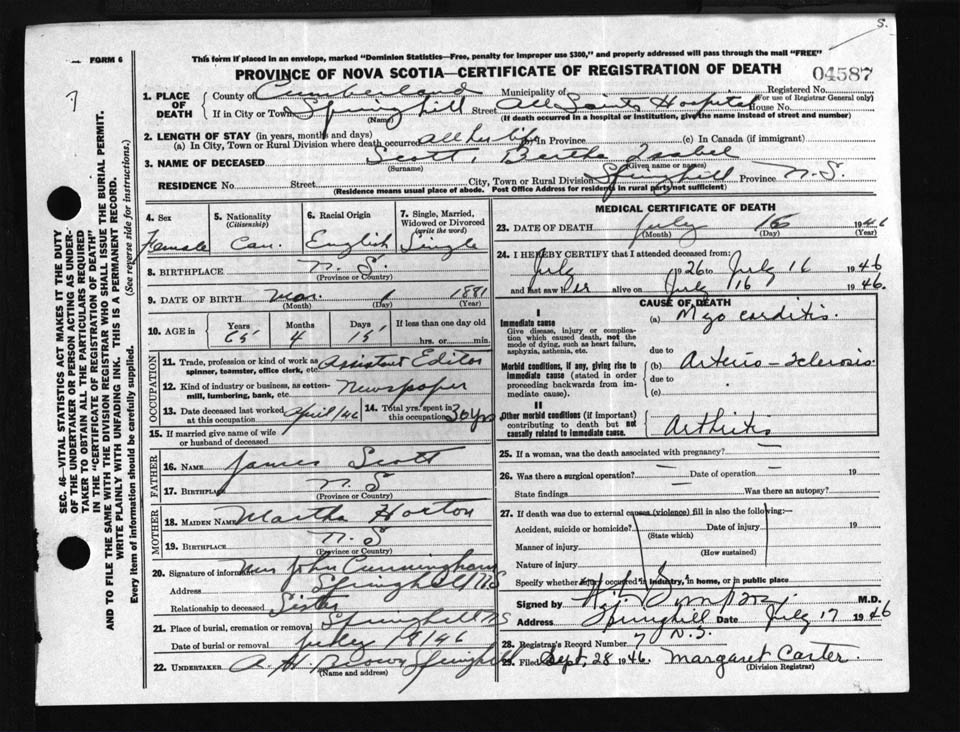 5.
FORM 6
This form if placed in an envelope, marked "Dominion Statistics—Free, penalty for improper use $300," and properly addressed will pass through the mail "FREE"
PROVINCE OF NOVA SCOTIA—CERTIFICATE OF REGISTRATION OF DEATH
04587
SEC. 46—VITAL STATISTICS ACT MAKES IT THE DUTY
OF THE UNDERTAKER OR PERSON ACTING AS UNDER-
TAKER TO OBTAIN ALL THE PARTICULARS REQUIRED
IN THE "CERTIFICATE OF REGISTRATION OF DEATH"
AND TO FILE THE SAME WITH THE DIVISION REGISTRAR WHO SHALL ISSUE THE BURIAL PERMIT.
WRITE PLAINLY WITH UNFADING INK. THIS IS A PERMANENT RECORD.
Every item of information should be carefully supplied. (See reverse side for instructions.)
1. PLACE OF DEATH
County of Cumberland Municipality of Registered No.
(For use of Registrar General only)
If in City or Town Springhill Street All Saints Hospital House No.
(Name) (If death occurred in a hospital or institution, give the name instead of street and number)
2. LENGTH OF STAY (in years, months and days)
(a) In City, Town or Rural Division where death occurred all her life (b) In Province (c) In Canada (if immigrant)
3. NAME OF DECEASED Scott, Bertha Isabel
(Surname) (Given name or names)
RESIDENCE No. Street City, Town or Rural Division Springhill Province N.S.
(Residence means usual place of abode. Post Office Address for residents in rural parts not sufficient)
4. Sex Female
5. Nationality (Citizenship) Can.
6. Racial Origin English
7. Single, Married, Widowed or Divorced (write the word) Single
8. BIRTHPLACE N.S.
(Province or Country)
9. DATE OF BIRTH Mar. 1 1881
(Month) (Day) (Year)
10. AGE in Years 65 Months 4 Days 15 If less than one day old
hrs. or min.
OCCUPATION
11. Trade, profession or kind of work as spinner, teamster, office clerk, etc. Assistant Editor
12. Kind of industry or business, as cotton-mill, lumbering, bank, etc. Newspaper
13. Date deceased last worked at this occupation April/46 14. Total yrs. spent in this occupation 30 yrs
15. If married give name of wife or husband of deceased
FATHER
16. NAME James Scott
17. BIRTHPLACE N.S
(Province or Country)
MOTHER
18. MAIDEN NAME Martha Horton
19. BIRTHPLACE N.S
(Province or Country)
20. Signature of informant Mrs John Cunningham
Address Springhill NS
Relationship to deceased Sister
21. Place of burial, cremation or removal Springhill NS
Date of burial or removal July 18/46
22. UNDERTAKER A. H. Brown Springhill
(Name and address)
MEDICAL CERTIFICATE OF DEATH
23. DATE OF DEATH July 16 1946
(Month) (Day) (Year)
24. I HEREBY CERTIFY that I attended deceased from:
July 1926 to July 16 1946
and last saw her alive on July 16 1946.
CAUSE OF DEATH
I
Immediate cause (a) Myocarditis.
Give disease, injury or complication which caused death, not the mode of dying, such as heart failure, asphyxia, asthenia, etc.
due to
Morbid conditions, if any, giving rise to immediate cause (stated in order proceeding backwards from immediate cause).
(b) Arterio-sclerosis
due to
(c)
II
Other morbid conditions (if important) contributing to death but not causally related to immediate cause.
Arthritis
25. If a woman, was the death associated with pregnancy? —
26. Was there a surgical operation? — Date of operation — 19
State findings — Was there an autopsy?
27. If death was due to external causes (violence) fill in also the following:—
Accident, suicide or homicide? Date of injury 19
(State which)
Manner of injury
(How sustained)
Nature of injury
Specify whether injury occurred in industry, in home, or in public place
Signed by M.D.
Address Springhill Date July 17 1946
N.S.
28. Registrar's Record Number 7
29. Filed Sept. 28 1946. Margaret Carter.
(Division Registrar)